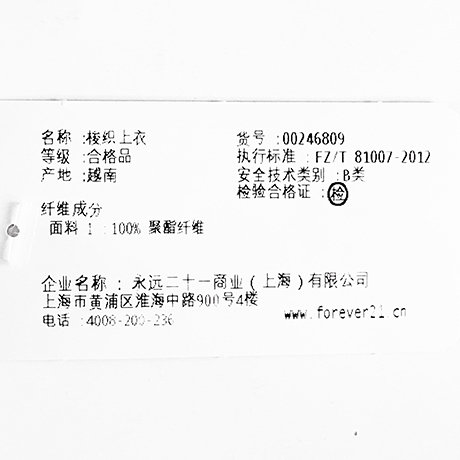 名称 :梭织上衣
等级 :合格品
产地 :越南
货号 :00246809
执行标准 : FZ/T 81007-2012
安全技术类别 :B类
检验合格证 :检
纤维成分
面料 1 : 100% 聚酯纤维
企业名称 : 永远二十一商业 ( 上海 ) 有限公司
上海市黄浦区淮海中路900号4楼
电话 : 4008-200-236
www.forever21.cn